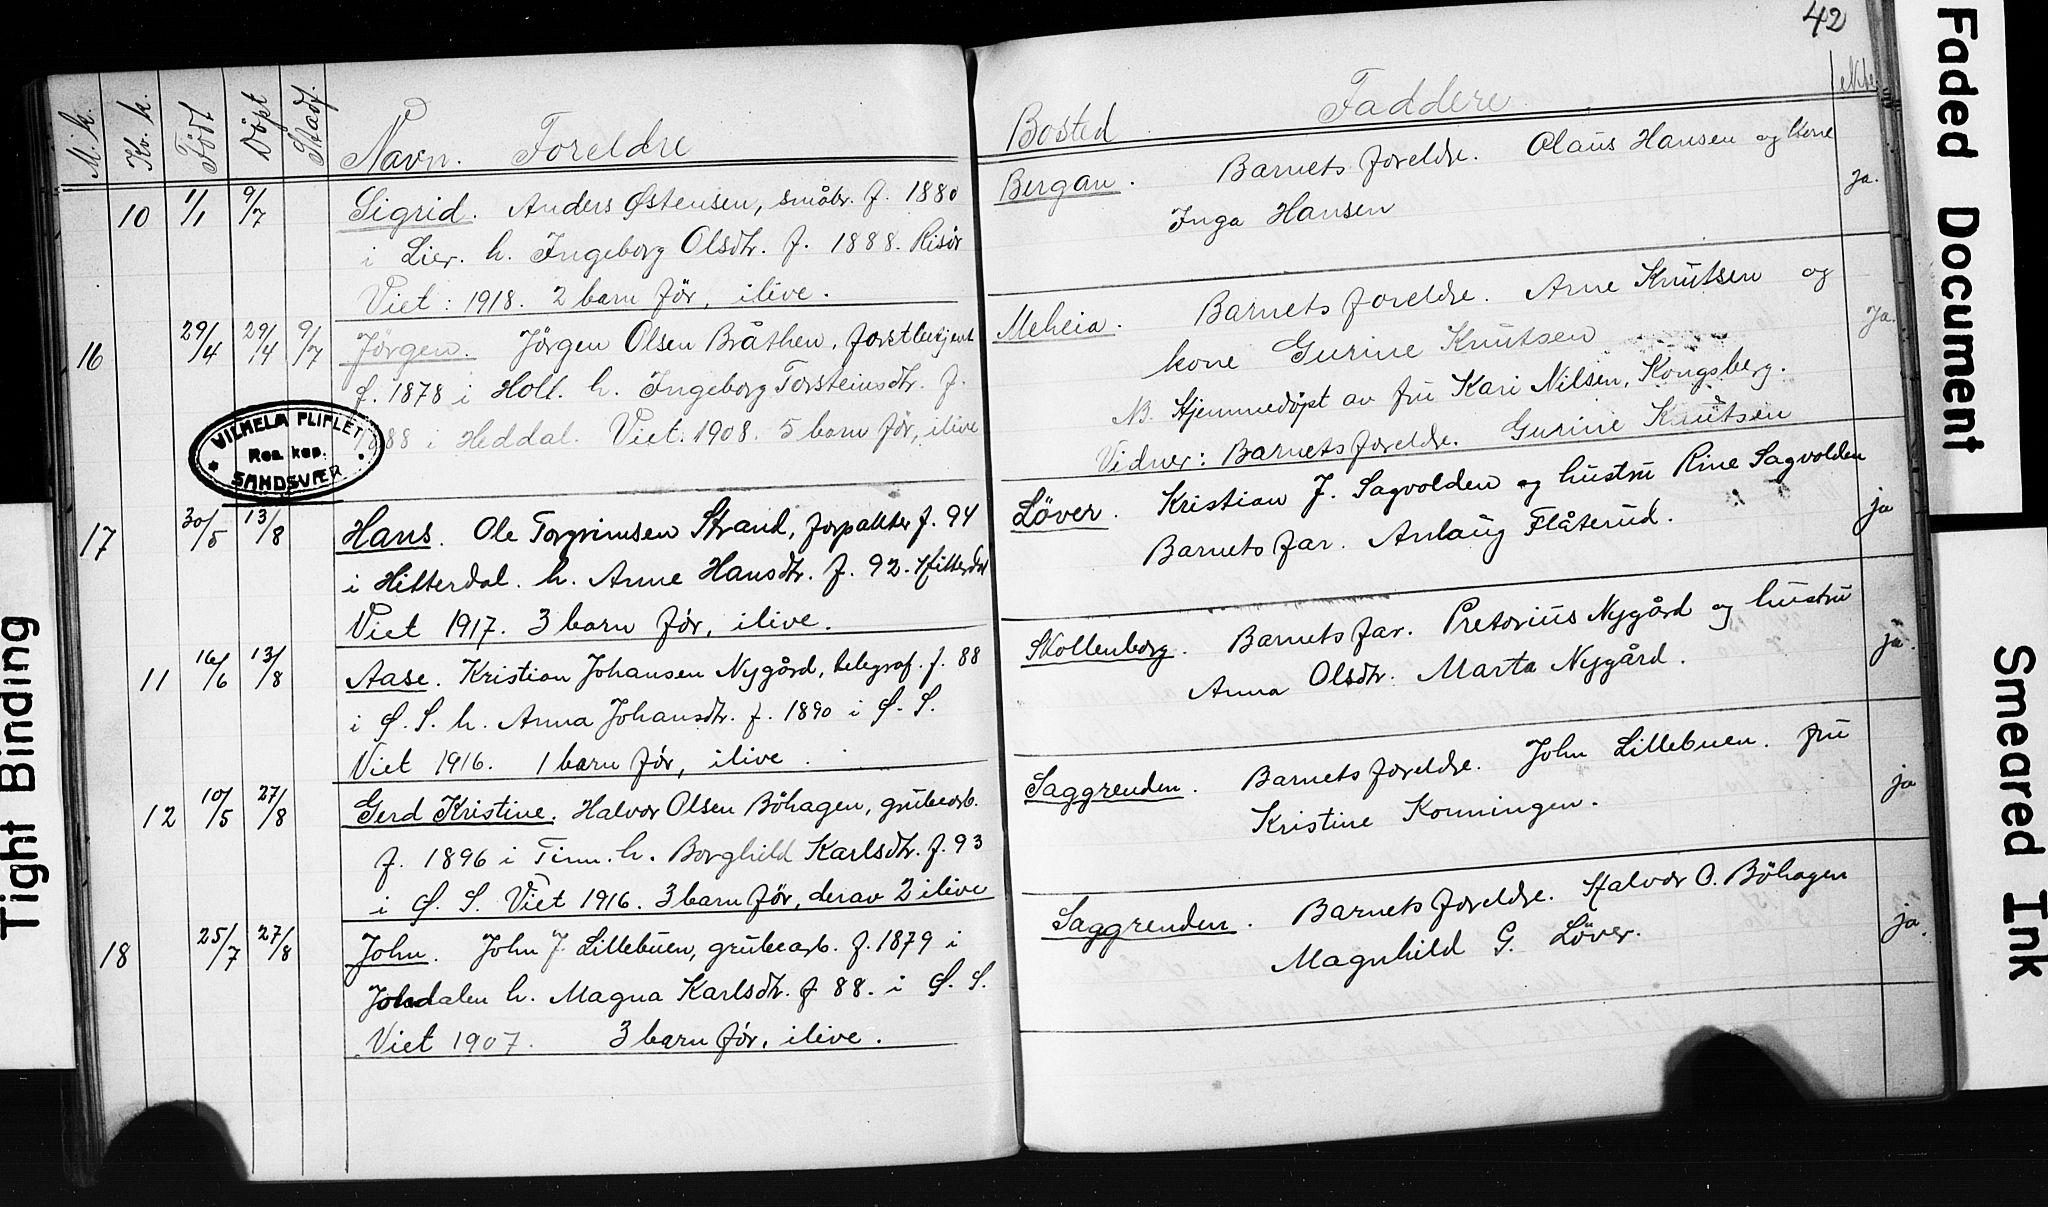 42
M.k. Kv.k. Født Døpt Stadf. Navn. Foreldre
10 1/1 9/7 Sigrid. Anders Østensen, småbr. f. 1880
i Lier. h. Ingeborg Olsdtr. f. 1888. Risör
Viet: 1918. 2 barn før, ilive.
16 29/4 29/4 9/7 Jörgen. Jörgen Olsen Bråthen, forstbetjent
f. 1878 i Holt. h. Ingeborg Torsteinsdtr. f.
1888 i Heddal. Viet. 1908. 5 barn før, ilive
VILHELM FLIFLET
Res. kap.
SANDSVÆR
17 30/5 13/8 Hans. Ole Torgrimsen Strand, forpakter f. 94
i Hitterdal. h. Anne Hansdtr. f. 92. Hitterdal
Viet 1917. 3 barn før, ilive.
11 16/6 13/8 Aase. Kristian Johansen Nygård, telegraf. f. 88
i Ø. S. h. Anna Johansdtr. f. 1890 i Ø. S.
Viet 1916. 1 barn før, ilive.
12 10/5 27/8 Gerd Kristine. Halvor Olsen Böhagen, grubearb.
f. 1896 i Tinn. h. Borghild Karlsdtr. f. 93
i Ø. S. Viet 1916. 3 barn før, derav 2 ilive
18 25/7 27/8 John. John J. Lillebuen, grubearb. f. 1879 i
Jondalen h. Magna Karlsdtr. f 88. i Ø. S.
Viet 1907. 3 barn før, ilive.
Bosted Faddere ekte
Bergan. Barnets foreldre. Olaus Hansen og kone ja.
Inga Hansen
Meheia. Barnets foreldre. Arne Knutsen og ja.
kone Gurine Knutsen
NB. Hjemmedöpt av fru Kari Nilsen, Kongsberg.
Vidner: Barnets foreldre. Gurine Knutsen
Løver. Kristian J. Sagvolden og hustru Rine Sagvolden ja
Barnets far. Anlaug Flåterud.
Skollenborg. Barnets far. Pretorius Nygård og hustru ja.
Anna Olsdtr. Marta Nygård.
Saggrenden. Barnets foreldre. John Lillebuen. fru ja
Kristine Konningen.
Saggrenden. Barnets foreldre. Halvor O. Böhagen ja.
Magnhild G. Löver.
Tight Binding
Faded Document
Smeared Ink